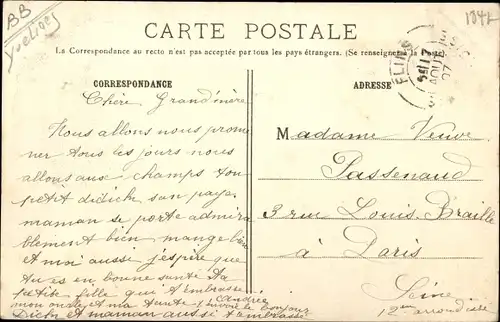 BB
Yvelines
1341
CARTE POSTALE
La Correspondance au recto n'est pas acceptée par tous les pays étrangers. (Se renseigner à la Poste).
CORRESPONDANCE
Chère Grand'mère
Nous allons nous prome
ner tous les jours nous
allons aux champs ton
petit didich son papa
maman se porte admira
blement bien mange bien
et moi aussi j'espère que
tu es en bonne santé ta
petite fille qui t'embrasse
Candrée
mon oncle et ma tante t'envoie le bonjour
Dich et maman aussi t'embrasse
ADRESSE
Madame Veuve
Passenaud
3 rue Louis Braille
à Paris
Seine
12eme arrondisse
FLINS
AOUT
07